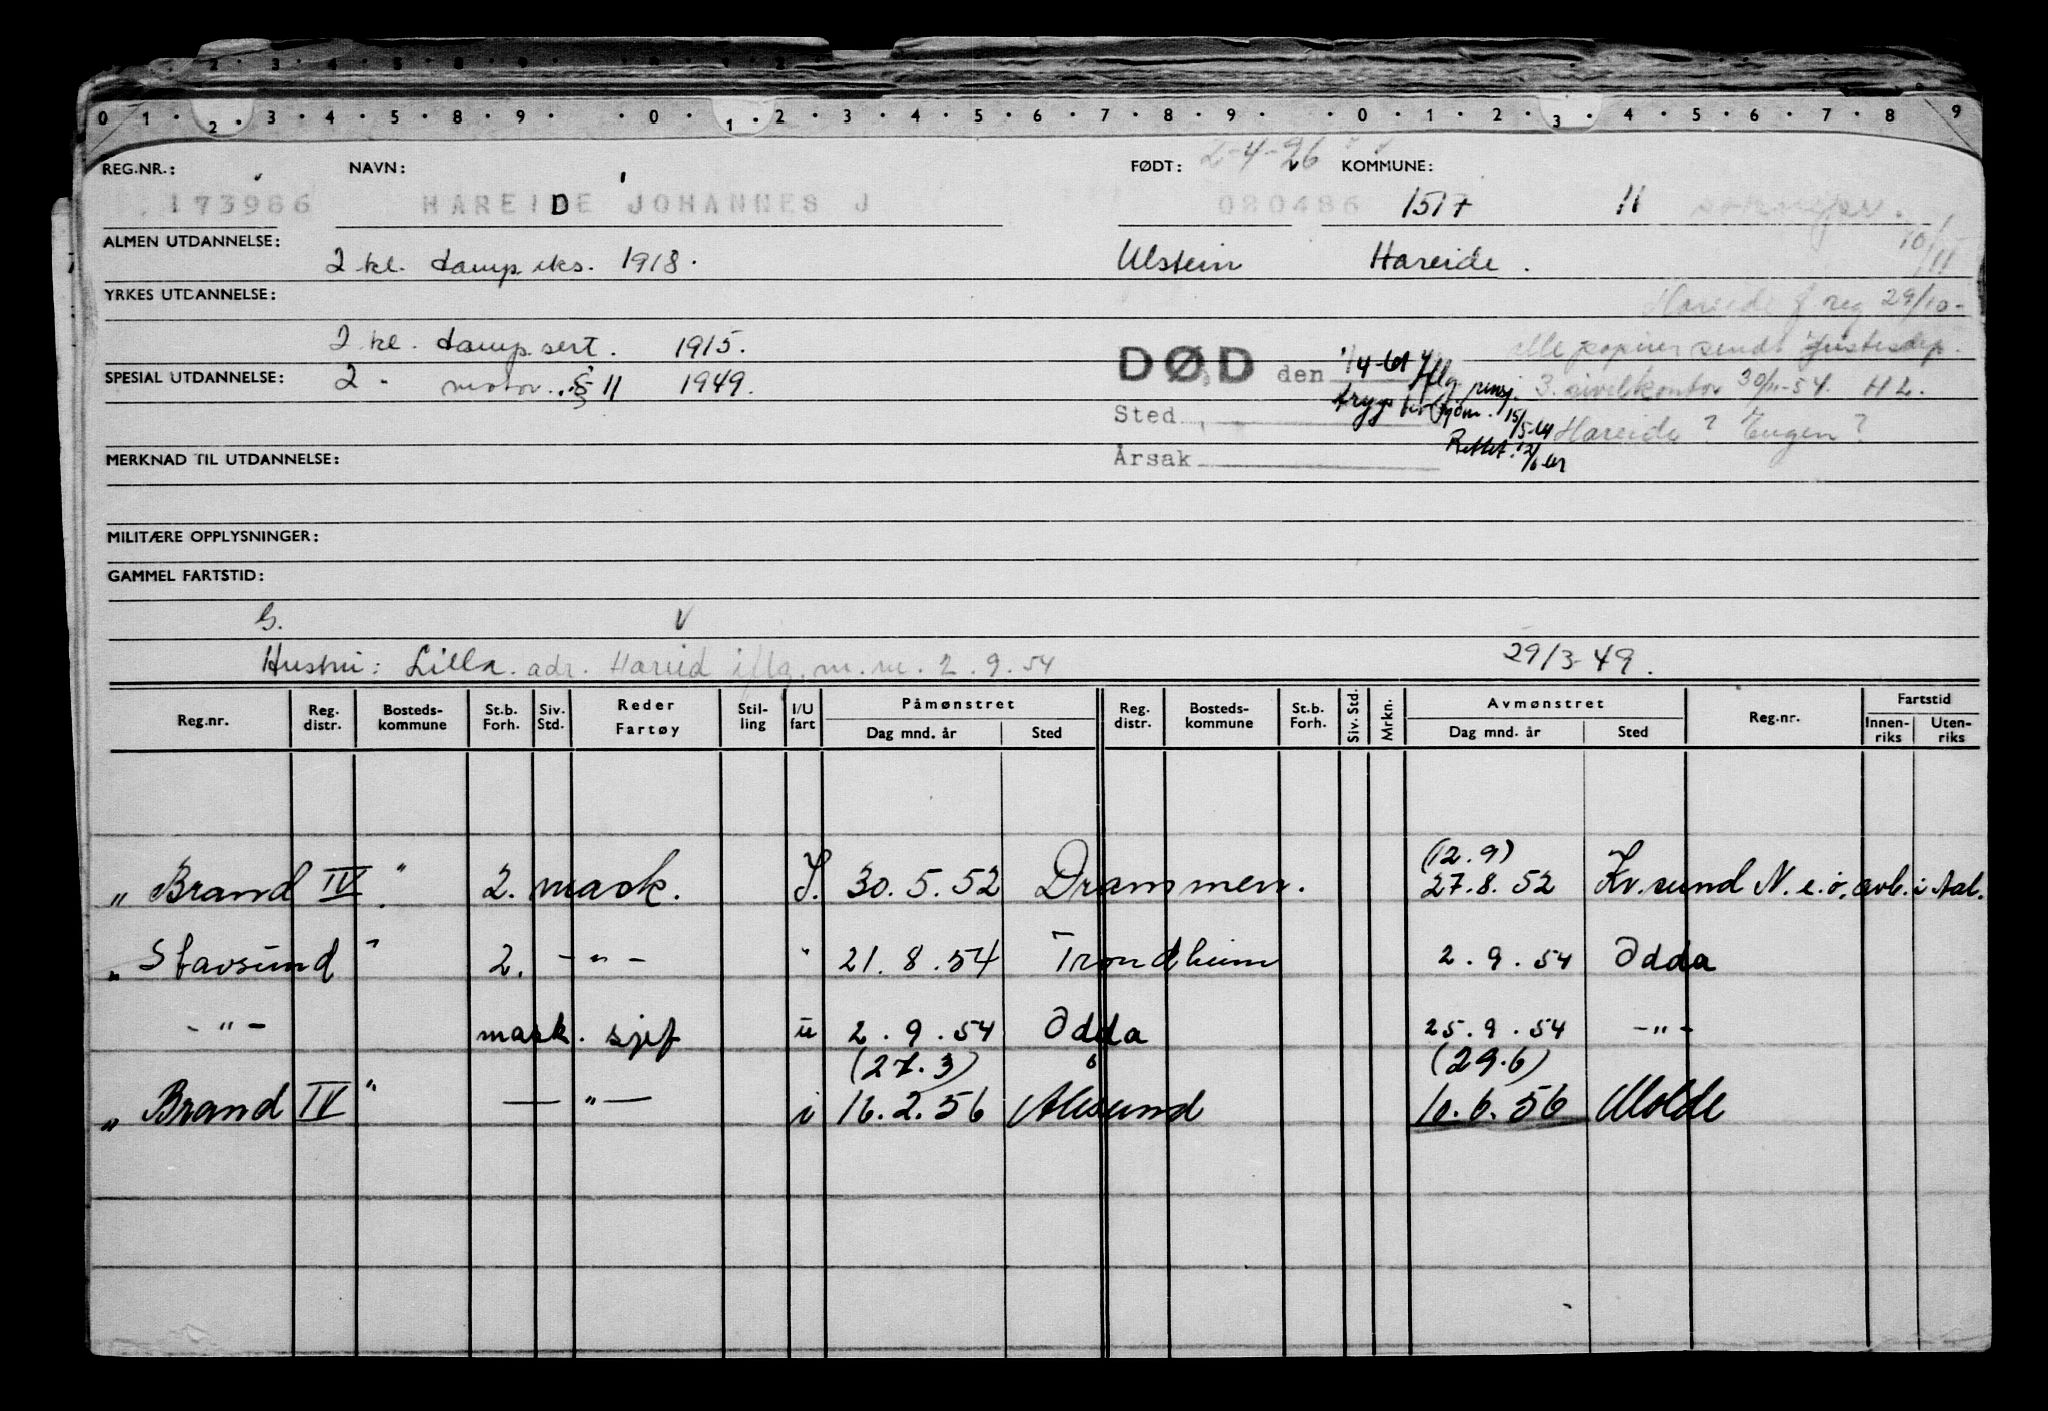 0 1 2 3 4 5 8 9 0 1 2 3 4 5 6 7 8 9 0 1 2 3 4 5 6 7 8 9
2-4-26
REG.NR.: NAVN: FØDT: KOMMUNE:
173966 HAREIDE JOHANNES J 080486 1517 11
ALMEN UTDANNELSE: 10/11
2 kl. damp eks. 1918. Ulstein Hareide.
YRKES UTDANNELSE: Hareide f reg 29/10-
2 kl. damp sert. 1915. alle papirer sendt Justisdep.
DØD den 1/4-61 iflg pensj. 3. sivelkontor 30/11-54. HL.
SPESIAL UTDANNELSE: 2 - motor. § 11 1949.
trygd for sjøm. 15/5-61
Sted Hareide? Eugen?
Rettet. 12/6-61
Årsak
MERKNAD TIL UTDANNELSE:
MILITÆRE OPPLYSNINGER:
GAMMEL FARTSTID:
G. V
Hustru: Lilla. adr. Hareid iflg. m.m. 2.9.54 29/3-49.
Reg.nr. Reg. distr. Bosteds-kommune St.b. Forh. Siv. Std. Reder Fartøy Stil-ling I/U fart Påmønstret Dag mnd. år Sted Reg. distr. Bosteds-kommune St.b. Forh. Siv. Std. Mrkn. Avmønstret Dag mnd. år Sted Reg.nr. Fartstid Innen-riks Uten-riks
(12.9)
" Brand IV " 2. mask. I. 30.5.52 Drammen. 27.8.52 Kr.sund N. e.o. avb. i Aal.
" Stavsund " 2. -"- " 21.8.54 Trondheim 2.9.54 Odda
-"- mask. sjef u 2.9.54 Odda 25.9.54 -"-
(27.3) (29.6)
" Brand IV " -"- i 16.2.56 Ålesund 10.6.56 Molde